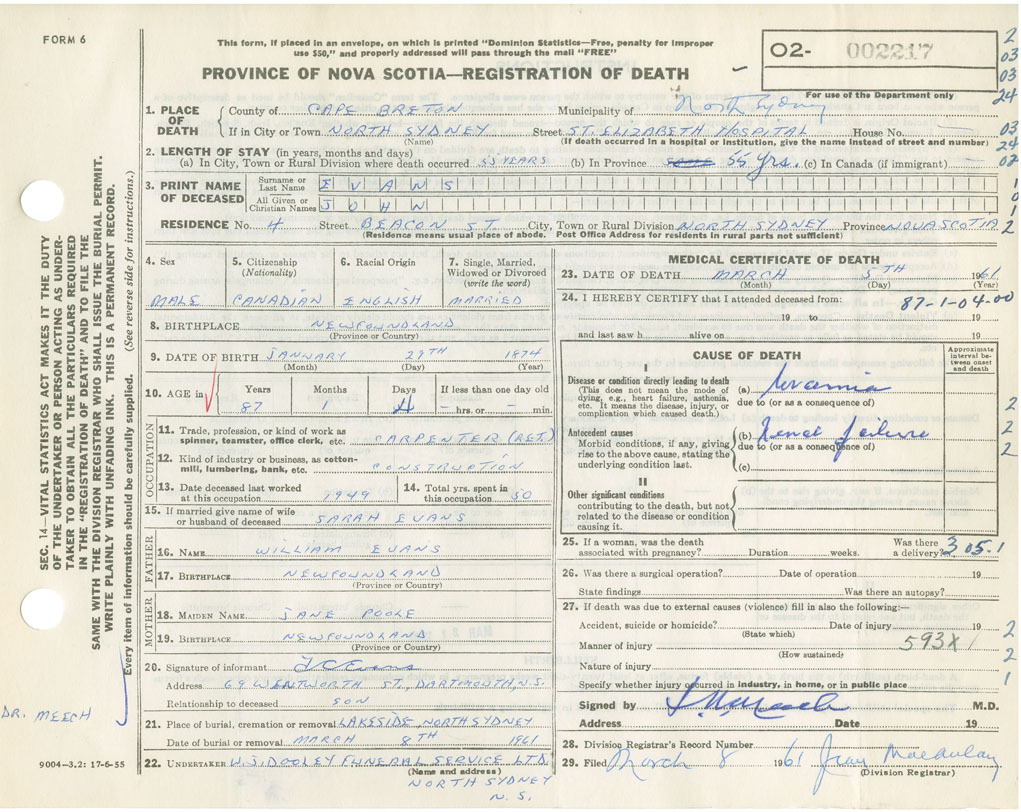 FORM 6
This form, if placed in an envelope, on which is printed "Dominion Statistics—Free, penalty for improper
use $50," and properly addressed will pass through the mail "FREE"
PROVINCE OF NOVA SCOTIA—REGISTRATION OF DEATH
O2- 002217
For use of the Department only
2
03
03
24
03
24
02
1
0
1
2
1. PLACE OF DEATH
County of CAPE BRETON Municipality of North Sydney
If in City or Town NORTH SYDNEY Street ST. ELIZABETH HOSPITAL House No.
(Name) (If death occurred in a hospital or institution, give the name instead of street and number)
2. LENGTH OF STAY (in years, months and days)
(a) In City, Town or Rural Division where death occurred 55 YEARS (b) In Province 55 yrs. (c) In Canada (if immigrant)
3. PRINT NAME OF DECEASED
Surname or Last Name EVANS
All Given or Christian Names JOHN
RESIDENCE No. 4 Street BEACON ST. City, Town or Rural Division NORTH SYDNEY Province NOVA SCOTIA
(Residence means usual place of abode. Post Office Address for residents in rural parts not sufficient)
4. Sex
MALE
5. Citizenship
(Nationality)
CANADIAN
6. Racial Origin
ENGLISH
7. Single, Married, Widowed or Divorced
(write the word)
MARRIED
8. BIRTHPLACE NEWFOUNDLAND
(Province or Country)
9. DATE OF BIRTH JANUARY 29TH 1874
(Month) (Day) (Year)
10. AGE in
Years Months Days If less than one day old
87 1 - hrs. or - min.
OCCUPATION
11. Trade, profession, or kind of work as
spinner, teamster, office clerk, etc. CARPENTER (RET.)
12. Kind of industry or business, as cotton-
mill, lumbering, bank, etc. CONSTRUCTION
13. Date deceased last worked
at this occupation 1949
14. Total yrs. spent in
this occupation 50
15. If married give name of wife
or husband of deceased SARAH EVANS
FATHER
16. NAME WILLIAM EVANS
17. BIRTHPLACE NEWFOUNDLAND
(Province or Country)
MOTHER
18. MAIDEN NAME JANE POOLE
19. BIRTHPLACE NEWFOUNDLAND
(Province or Country)
20. Signature of informant Evans
Address 69 WENTWORTH ST., DARTMOUTH, N.S.
Relationship to deceased SON
21. Place of burial, cremation or removal LAKESIDE, NORTH SYDNEY
Date of burial or removal MARCH 8TH 1961
22. UNDERTAKER W.J. DOOLEY FUNERAL SERVICE LTD.
(Name and address)
NORTH SYDNEY
N.S.
MEDICAL CERTIFICATE OF DEATH
23. DATE OF DEATH MARCH 5TH 1961
(Month) (Day) (Year)
24. I HEREBY CERTIFY that I attended deceased from:
87-1-04-00
19 to 19
and last saw h alive on 19
CAUSE OF DEATH
Approximate interval between onset and death
I
Disease or condition directly leading to death
(This does not mean the mode of
dying, e.g., heart failure, asthenia,
etc. It means the disease, injury, or
complication which caused death.)
(a) Uraemia
due to (or as a consequence of)
Antecedent causes
Morbid conditions, if any, giving
rise to the above cause, stating the
underlying condition last.
(b) Renal failure
due to (or as a consequence of)
(c)
II
Other significant conditions
contributing to the death, but not
related to the disease or condition
causing it.
2
2
2
25. If a woman, was the death
associated with pregnancy? Duration weeks. Was there a delivery?
305.1
26. Was there a surgical operation? Date of operation 19
State findings Was there an autopsy?
27. If death was due to external causes (violence) fill in also the following:—
Accident, suicide or homicide? Date of injury 19
(State which)
Manner of injury 593X
(How sustained)
Nature of injury
Specify whether injury occurred in industry, in home, or in public place
2
2
1
Signed by M.D.
Address Date 19
28. Division Registrar's Record Number
29. Filed March 8 1961 Jean MacAulay
(Division Registrar)
SEC. 14—VITAL STATISTICS ACT MAKES IT THE DUTY
OF THE UNDERTAKER OR PERSON ACTING AS UNDER-
TAKER TO OBTAIN ALL THE PARTICULARS REQUIRED
IN THE "REGISTRATION OF DEATH" AND TO FILE THE
SAME WITH THE DIVISION REGISTRAR WHO SHALL ISSUE THE BURIAL PERMIT.
WRITE PLAINLY WITH UNFADING INK. THIS IS A PERMANENT RECORD.
Every item of information should be carefully supplied. (See reverse side for instructions.)
DR. MEECH
9004-3.2: 17-6-55